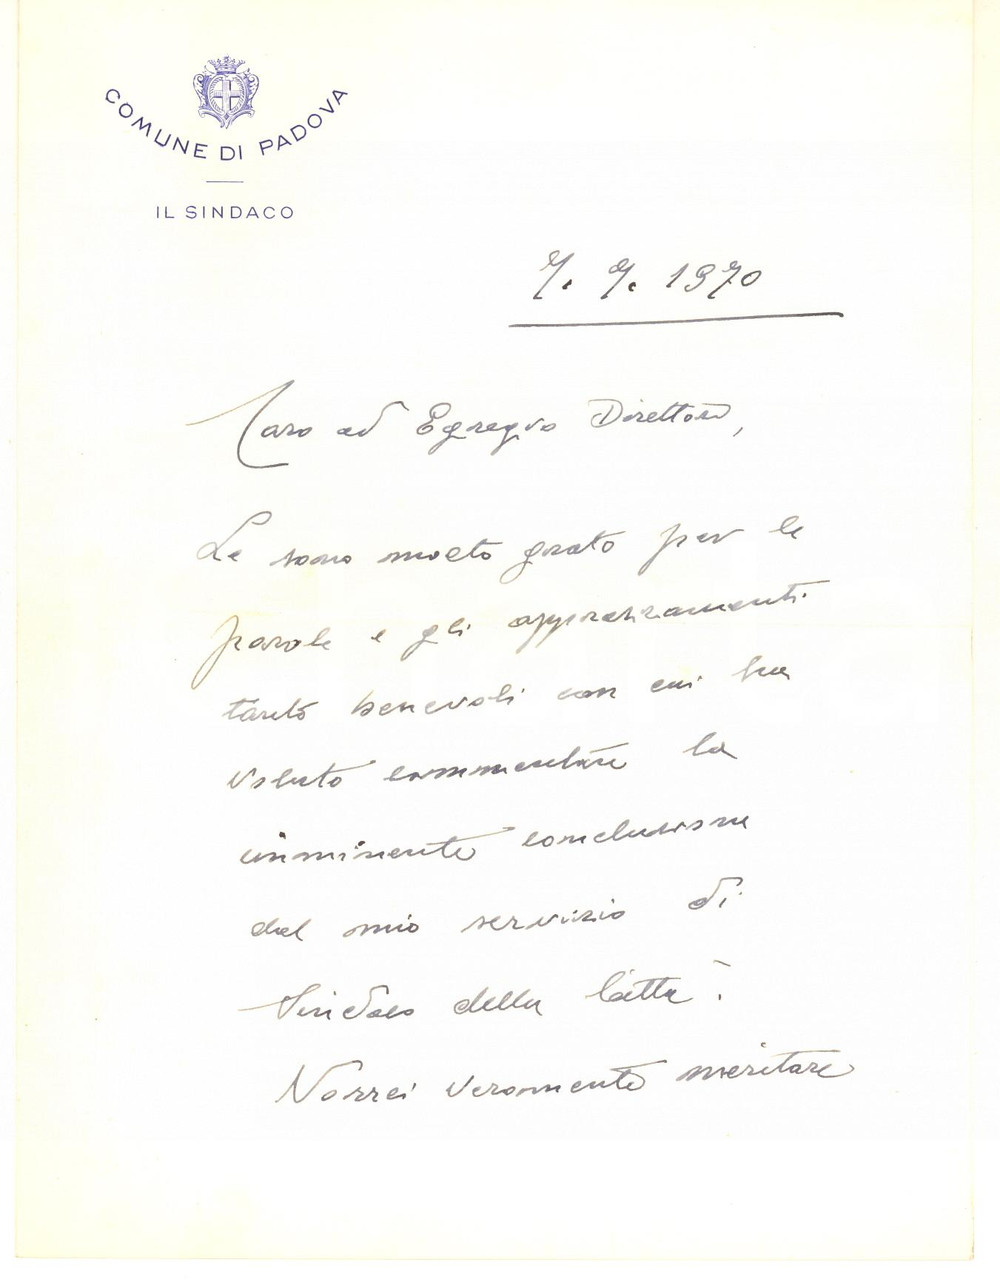 COMUNE DI PADOVA
IL SINDACO
7. 7. 1970
Caro ed Egregio Direttore,
Le sono molto grato per le
parole e gli apprezzamenti
tanto benevoli con cui ha
voluto commentare la
imminente conclusione
del mio servizio di
Sindaco della Città.
Vorrei veramente meritare